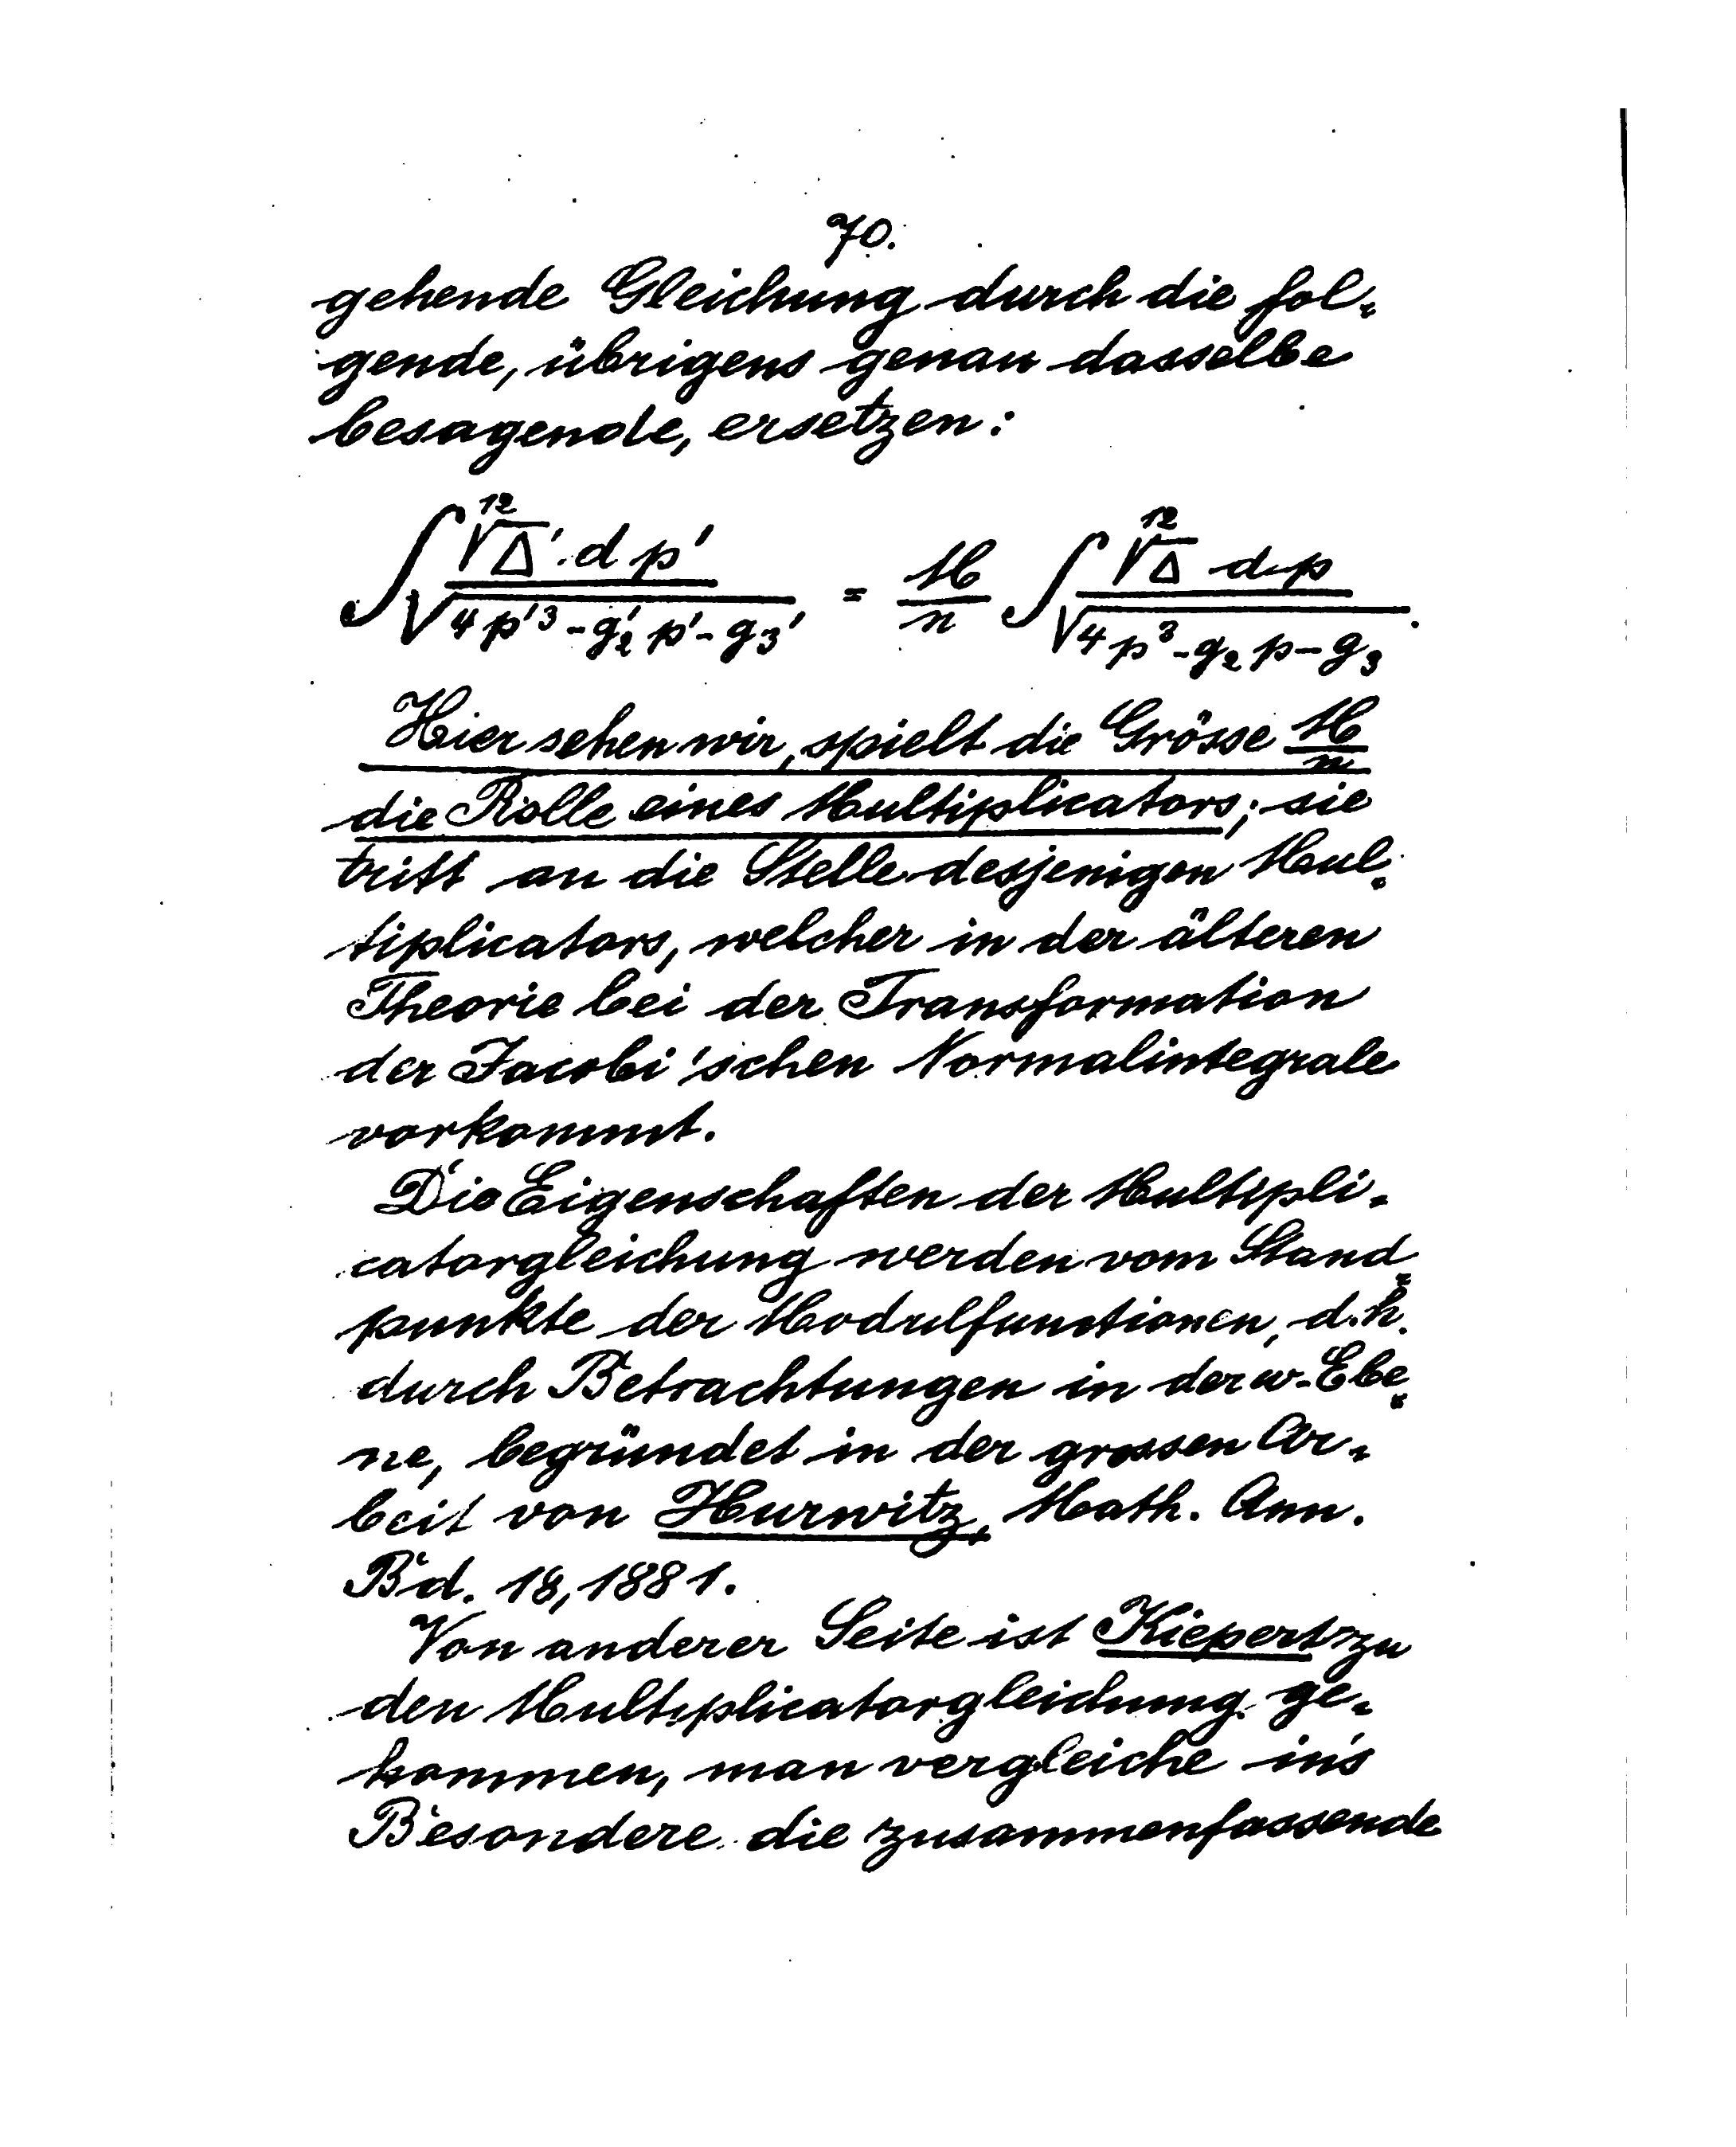 70.
gehende Gleichung durch die fol-
gende, übrigens genau dasselbe
besagende, ersetzen:
∫ \frac{\sqrt[12]{Δ'} · dp'}{\sqrt{4p'^3 - g_2' p' - g_3'}} = \frac{M}{n} ∫ \frac{\sqrt[12]{Δ} dp}{\sqrt{4p^3 - g_2 p - g_3}}.
Hier sehen wir, spielt die Grösse M/n
die Rolle eines Multiplicators; sie
tritt an die Stelle desjenigen Mul-
tiplicators, welcher in der älteren
Theorie bei der Transformation
der Jacobi'schen Normalintegrale
vorkommt.
Die Eigenschaften der Multipli-
catorgleichung werden vom Stand-
punkte der Modulfunctionen, d.h.
durch Betrachtungen in der ω-Ebe-
ne, begründet in der grossen Ar-
beit von Hurwitz, Math. Ann.
Bd. 18, 1881.
Von anderer Seite ist Kiepert zu
den Multiplicatorgleichung ge-
kommen, man vergleiche in's
Besondere die zusammenfassende